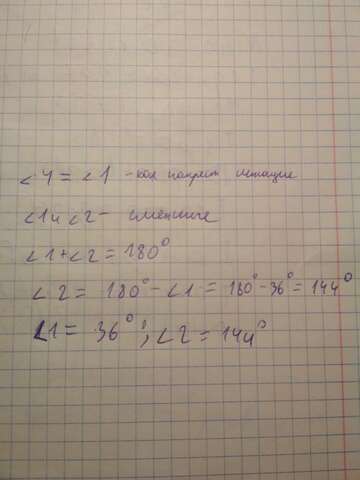 ∠4 = ∠1 - как накрест лежащие
∠1 и ∠2 - смежные
∠1 + ∠2 = 180°
∠2 = 180° - ∠1 = 180° - 36° = 144°
∠1 = 36°; ∠2 = 144°